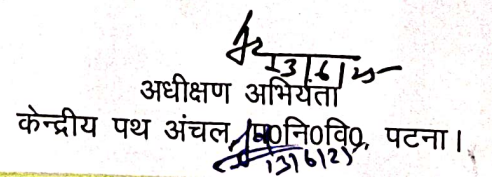 13/6/25
अधीक्षण अभियंता
केन्द्रीय पथ अंचल, प०नि०वि०, पटना।
13/6/25